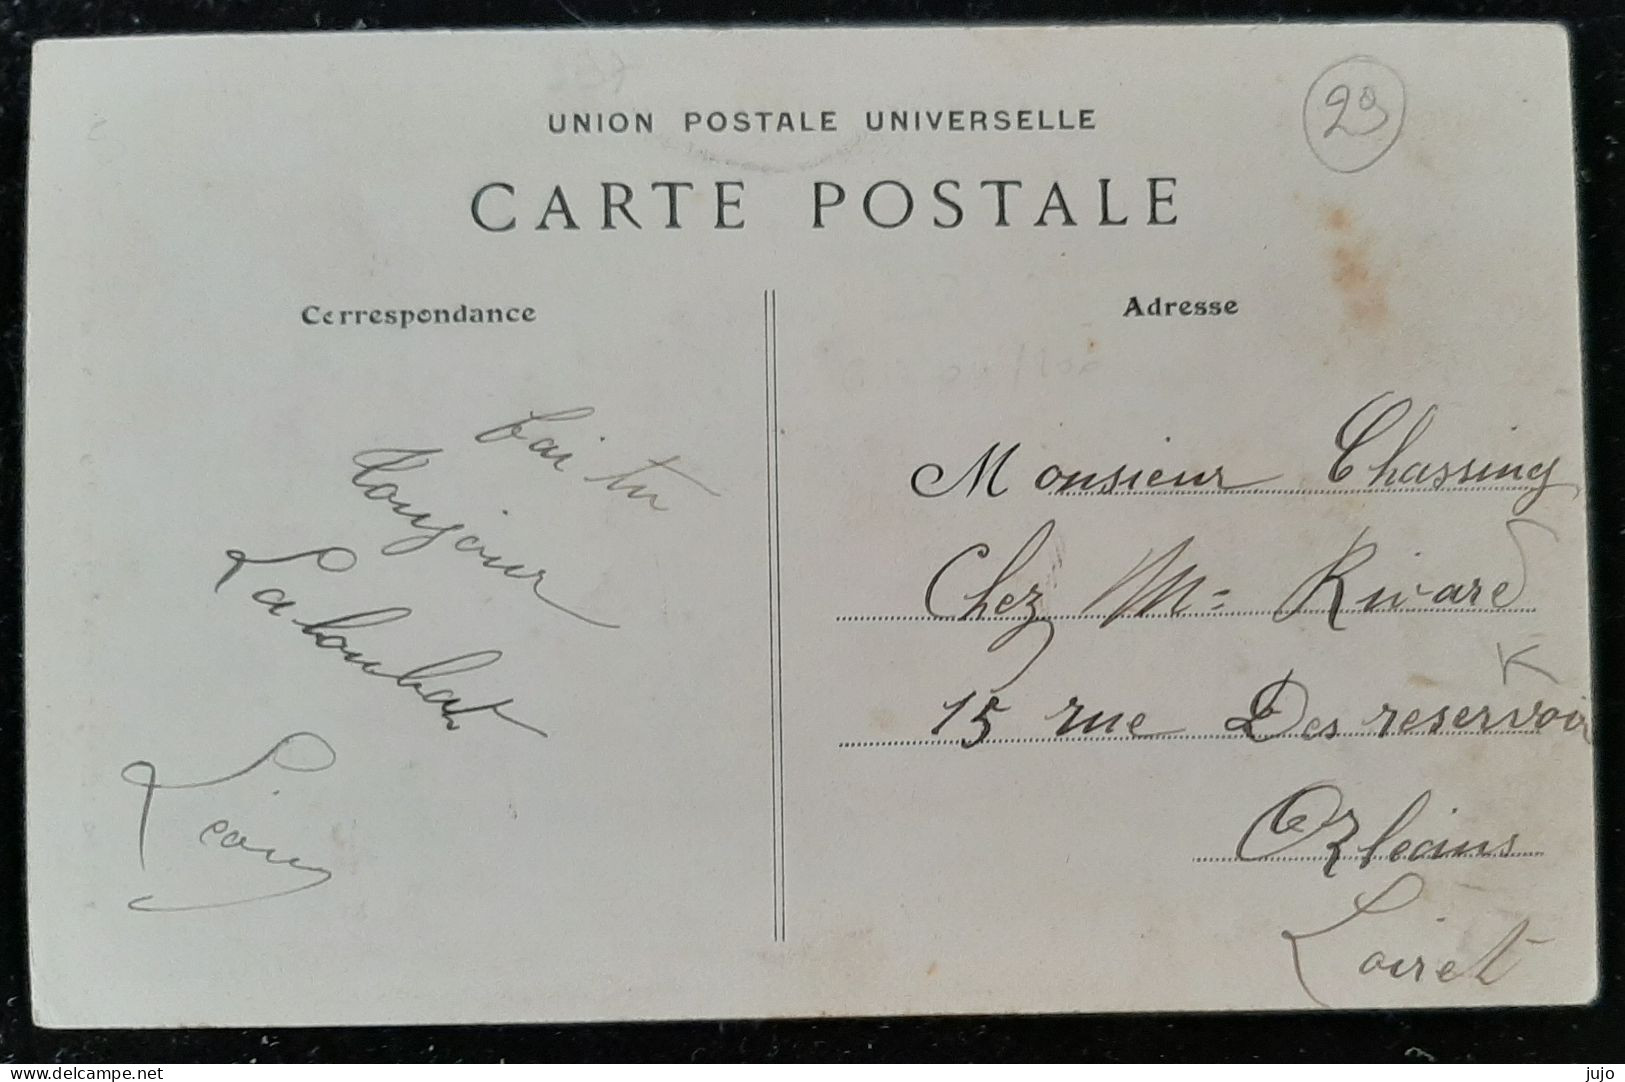 UNION POSTALE UNIVERSELLE
29
CARTE POSTALE
Correspondance
fai tu
toujour
La
Léon
Adresse
Monsieur Chassing
Chez Mr Rivard
K
15 rue Des reservoir
Orléans
Loiret
delcampe.net
jujo